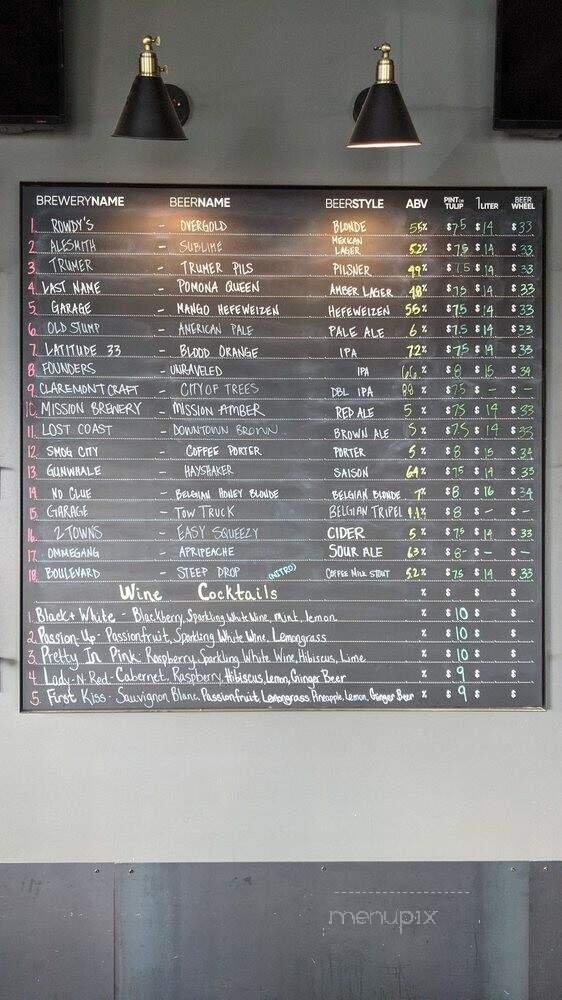 BREWERYNAME BEERNAME BEERSTYLE ABV PINT OR TULIP 1LITER BEER WHEEL
1. ROWDY'S - OVERGOLD BLONDE 5.5% $7.5 $14 $33
2 ALESMITH - SUBLIME MEXICAN LAGER 5.2% $7.5 $14 $33
3. TRUMER - TRUMER PILS PILSNER 4.9% $7.5 $14 $33
4. LAST NAME - POMONA QUEEN AMBER LAGER $7.5 $14 $33
5. GARAGE - MANGO HEFEWEIZEN HEFEWEIZEN 5.5% $7.5 $14 $33
6. OLD STUMP - AMERICAN PALE PALE ALE 6% $7.5 $14 $33
7. LATITUDE 33 - BLOOD ORANGE IPA 7.2% $7.5 $14 $33
8 FOUNDERS - UNRAVELED IPA 6.6% $8 $15 $34
9. CLAREMONT CRAFT - CITY OF TREES DBL IPA $7.5 $- $-
10. MISSION BREWERY - MISSION AMBER RED ALE 5% $7.5 $14 $33
11. LOST COAST - DOWNTOWN BROWN BROWN ALE 5% $7.5 $14 $33
12. SMOG CITY - COFFEE PORTER PORTER 5% $8 $15 $34
13 GUNWHALE - HAYSHAKER SAISON 6.4% $7.5 $14 $33
14 NO CLUE - BELGIAN HONEY BLONDE BELGIAN BLONDE 7% $8 $16 $34
15. GARAGE - TOW TRUCK BELGIAN TRIPEL $8 $- $-
16. 2 TOWNS - EASY SQUEEZY CIDER 5% $7.5 $14 $33
17. OMMEGANG - APRIPEACHE SOUR ALE 6.3% $8- $- $-
18. BOULEVARD - STEEP DROP (NITRO) COFFEE MILK STOUT 5.2% $7.5 $14 $33
Wine Cocktails % $ $ $
1. Black + White - Blackberry, Sparkling White Wine, mint, lemon % $10 $ $
2. Passion Up - Passionfruit, Sparkling White Wine, Lemongrass % $10 $ $
3. Pretty In Pink: Raspberry, Sparkling White Wine, Hibiscus, Lime % $10 $ $
4. Lady-N-Red- Cabernet, Raspberry, Hibiscus, Lemon, Ginger Beer % $9 $ $
5. First Kiss - Sauvignon Blanc Passionfruit Lemongrass Pineapple, Lemon, Ginger Beer % $9 $ $
menupix